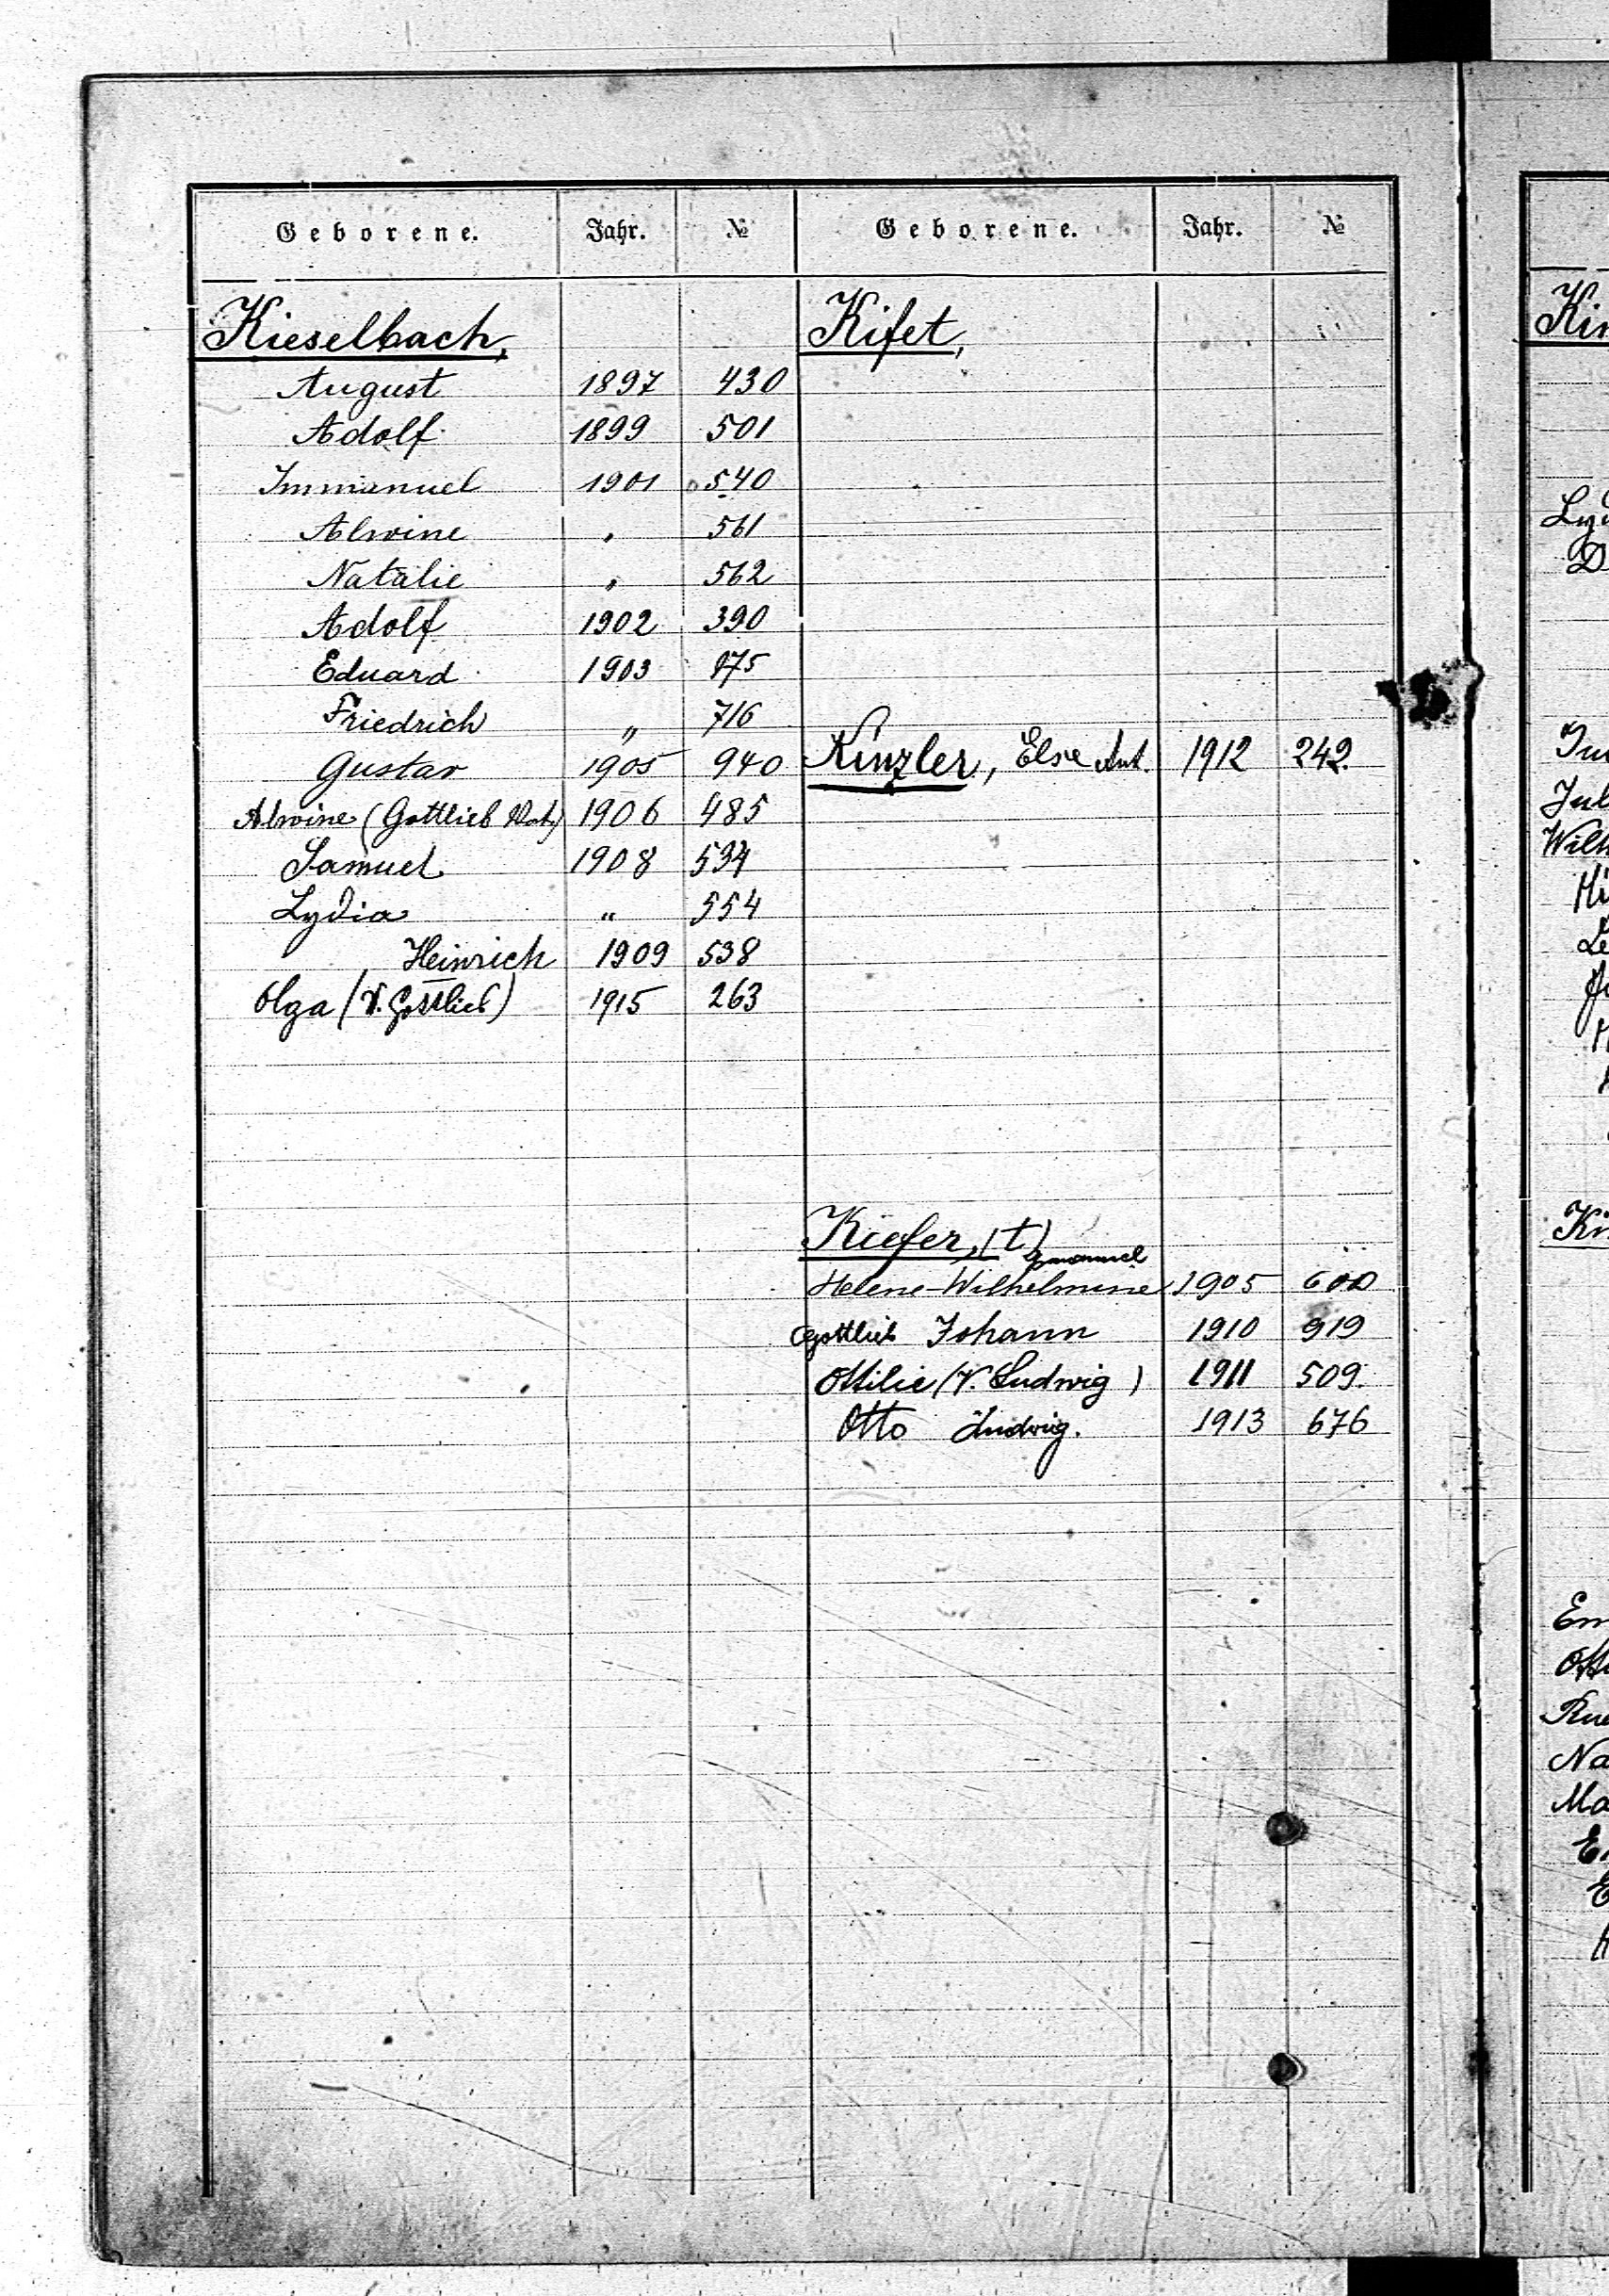 Geborene. Jahr. №
Kieselbach,
August 1897 430
Adolf 1899 501
Immanuel 1901 540
Alwine " 561
Natalie " 562
Adolf 1902 390
Eduard 1903 175
Friedrich " 716
Gustav 1905 940
Alwine (Gottlieb Nat.) 1906 485
Samuel 1908 534
Lydia " 554
Heinrich 1909 538
Olga (V. Gottlieb) 1915 263
Geborene. Jahr. №
Kifet,
Kinzler, Else Ant. 1912 242.
Kiefer, (t)
Helene-Wilhelmine 1905 600
Gottlieb Johann 1910 919
Ottilie (V. Ludwig) 1911 509.
Otto Ludwig. 1913 676
Kin
Lyd
D
Jul
Wilh
Em
Na
Ma